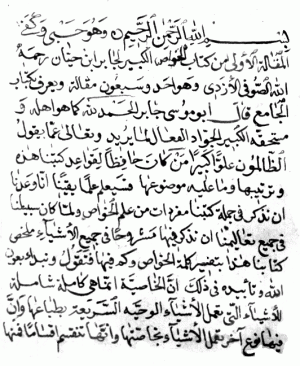 بسم الله الرحمن الرحيم وهو حسبي وكفى
المقالة الأولى من كتاب الخواص الكبير لجابر ابن حيان رحمه
الله الصوفي الأزدي وهو احد وسبعون مقالة ويعرف بكتاب
الجامع قال ابو موسى جابر الحمد لله كما هو اهله و
مستحقه الكبير الجواد الفعال لما يريد وتعالى عما يقول
الظالمون علوا كبيرا من كان حافظا لقواعد كتبنا هذه
وترتيبها وما عليه موضوعها فسيعلم علما يقينا انا وعدنا
ان نذكر في جملة كتبنا مفردات من علم الخواص ولما كان سبيلنا
في جميع تعاليمنا ان نذكر فيها مشروحا في جميع الأشياء ملخص
كتابنا هذا بتفسير كلمة الخواص وكم فيها فنقول ونبدا بعون
الله وتأييده في ذلك ان الخاصية انما هي كاملة شاملة
للأشياء التي تعمل الأشياء الوحيه السريعة بطباعها وان
فيها نوع آخر تعمل الأشياء بخاصتها وانها تنقسم اقساما فمنها